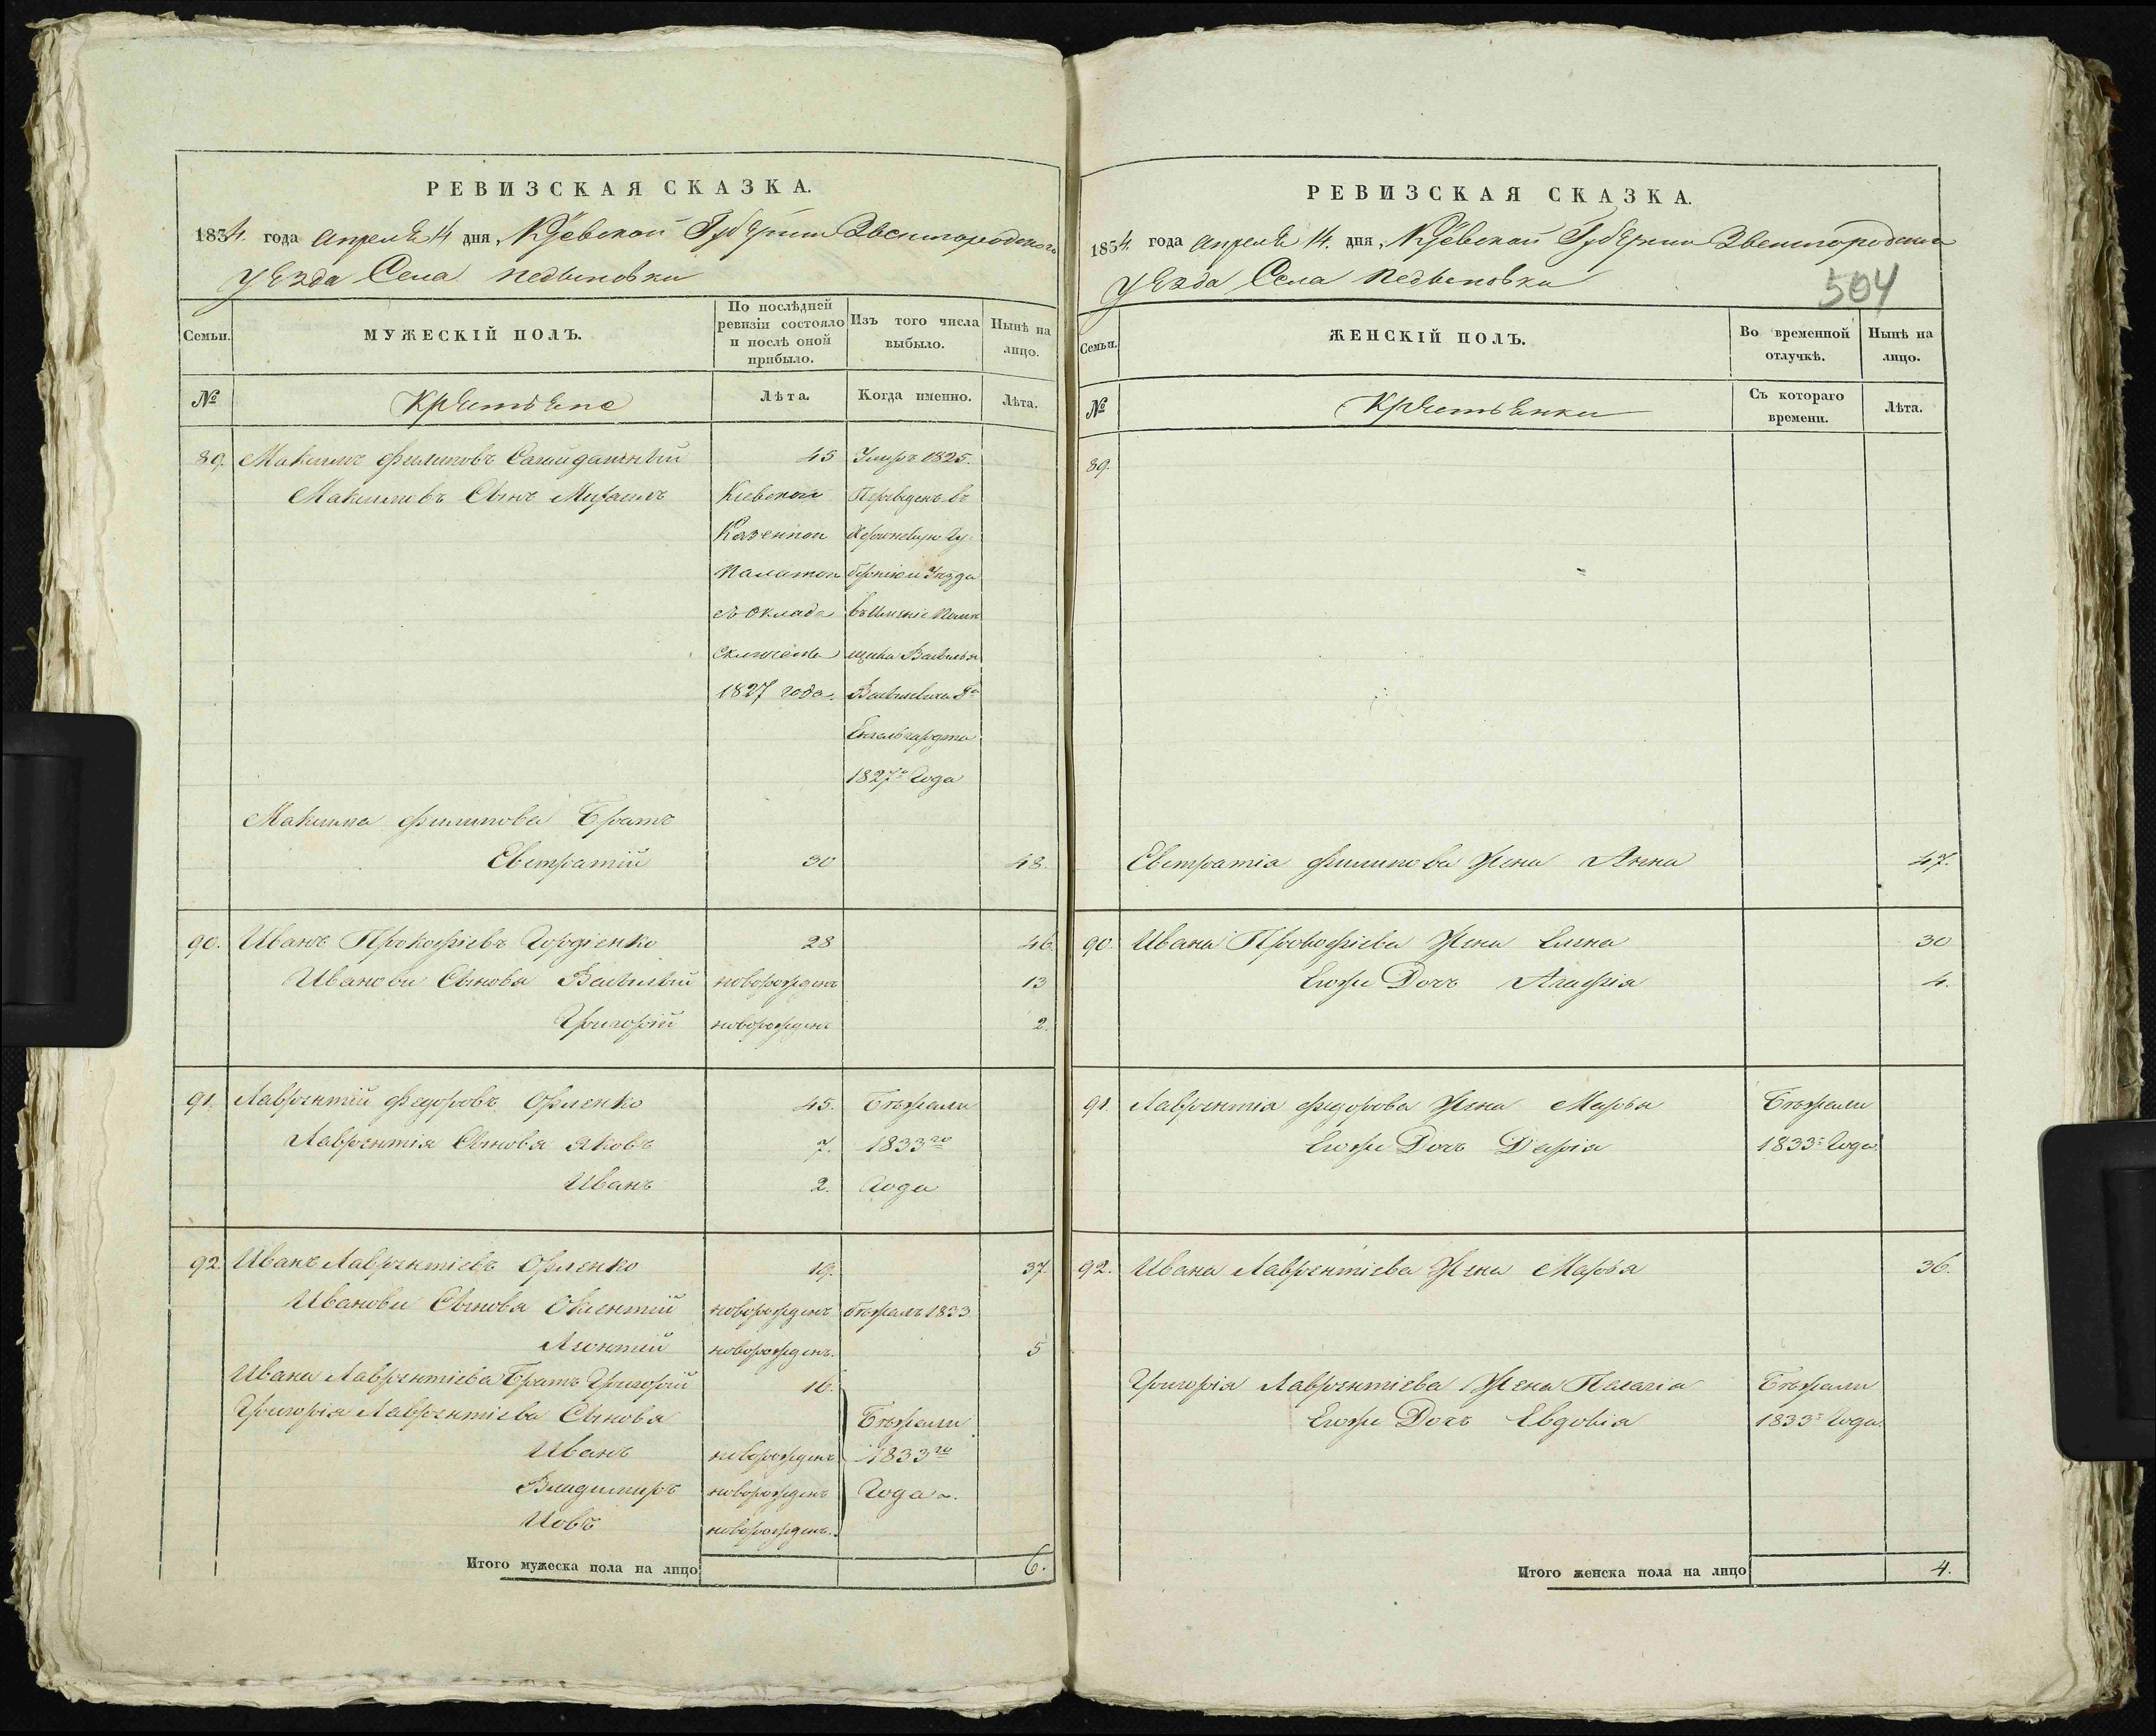 РЕВИЗСКАЯ СКАЗКА.
1834. года Апреля 14 дня, Кіевской Губерніи Звенигородского
уезда Села Педыновки
Семьи.
МУЖЕСКІЙ ПОЛЪ.
По послѣдней ревизіи состояло и послѣ оной прибыло.
Изъ того числа выбыло.
Нынѣ на лицо.
№
Крестьяне
Лѣта.
Когда именно.
Лѣта.
89. Максимъ Филиповъ Сагайдачный 45 Умеръ 1825.
Максимовъ Сынъ Михаилъ Киевской Переведенъ въ
Казенной Херсонскую Гу-
Палатой бернію и Уѣзда
съ Оклада въ имѣніе Помѣ
Сключенъ щика Василья
1827 года. Васильевича Гна
Енгельгардта
1827го Года
Максима Филипова Братъ
Евстратій 30 48.
90. Иванъ Прокофіевъ Гордіенко 28 46.
Ивановы Сыновья Василій новорожденъ 13
Григорій новорожденъ 2.
91. Лаврентій Федоровъ Орленко 45. Бѣжали
Лаврентія Сыновья Яковъ 7. 1833го
Иванъ 2. Года
92. Иванъ Лаврентіевъ Орленко 19. 37.
Ивановы Сыновья новорожденъ бѣжалъ 1833
Леонтій новорожденъ. 5
Ивана Лаврентіева Братъ Григорій 16.
Григорія Лаврентіева Сыновья Бѣжали
Иванъ новорожденъ 1833го
Владимиръ новорожденъ Года.
Иовъ новорожденъ.
Итого мужеска пола на лицо 6.
РЕВИЗСКАЯ СКАЗКА.
1834. года Апреля 14. дня, Кіевской Губерніи Звенигородского
уезда Села Педыновки
504
Семьи.
ЖЕНСКІЙ ПОЛЪ.
Во временной отлучкѣ.
Нынѣ на лицо.
№
Крестьянки
Съ котораго времени.
Лѣта.
89.
Евстратія Филипова Жена Анна 47.
90. Ивана Прокофіева Жена Елена 30
Егоже Дочь Агафія 4.
91. Лаврентія Федорова Жена Марья Бѣжали
Егоже Дочь Дарія 1833го Года.
92. Ивана Лаврентіева Жена Марья 36.
Григорія Лаврентіева Жена Пелагія Бѣжали
Егоже Дочь Евдокія 1833го Года.
Итого женска пола на лицо 4.